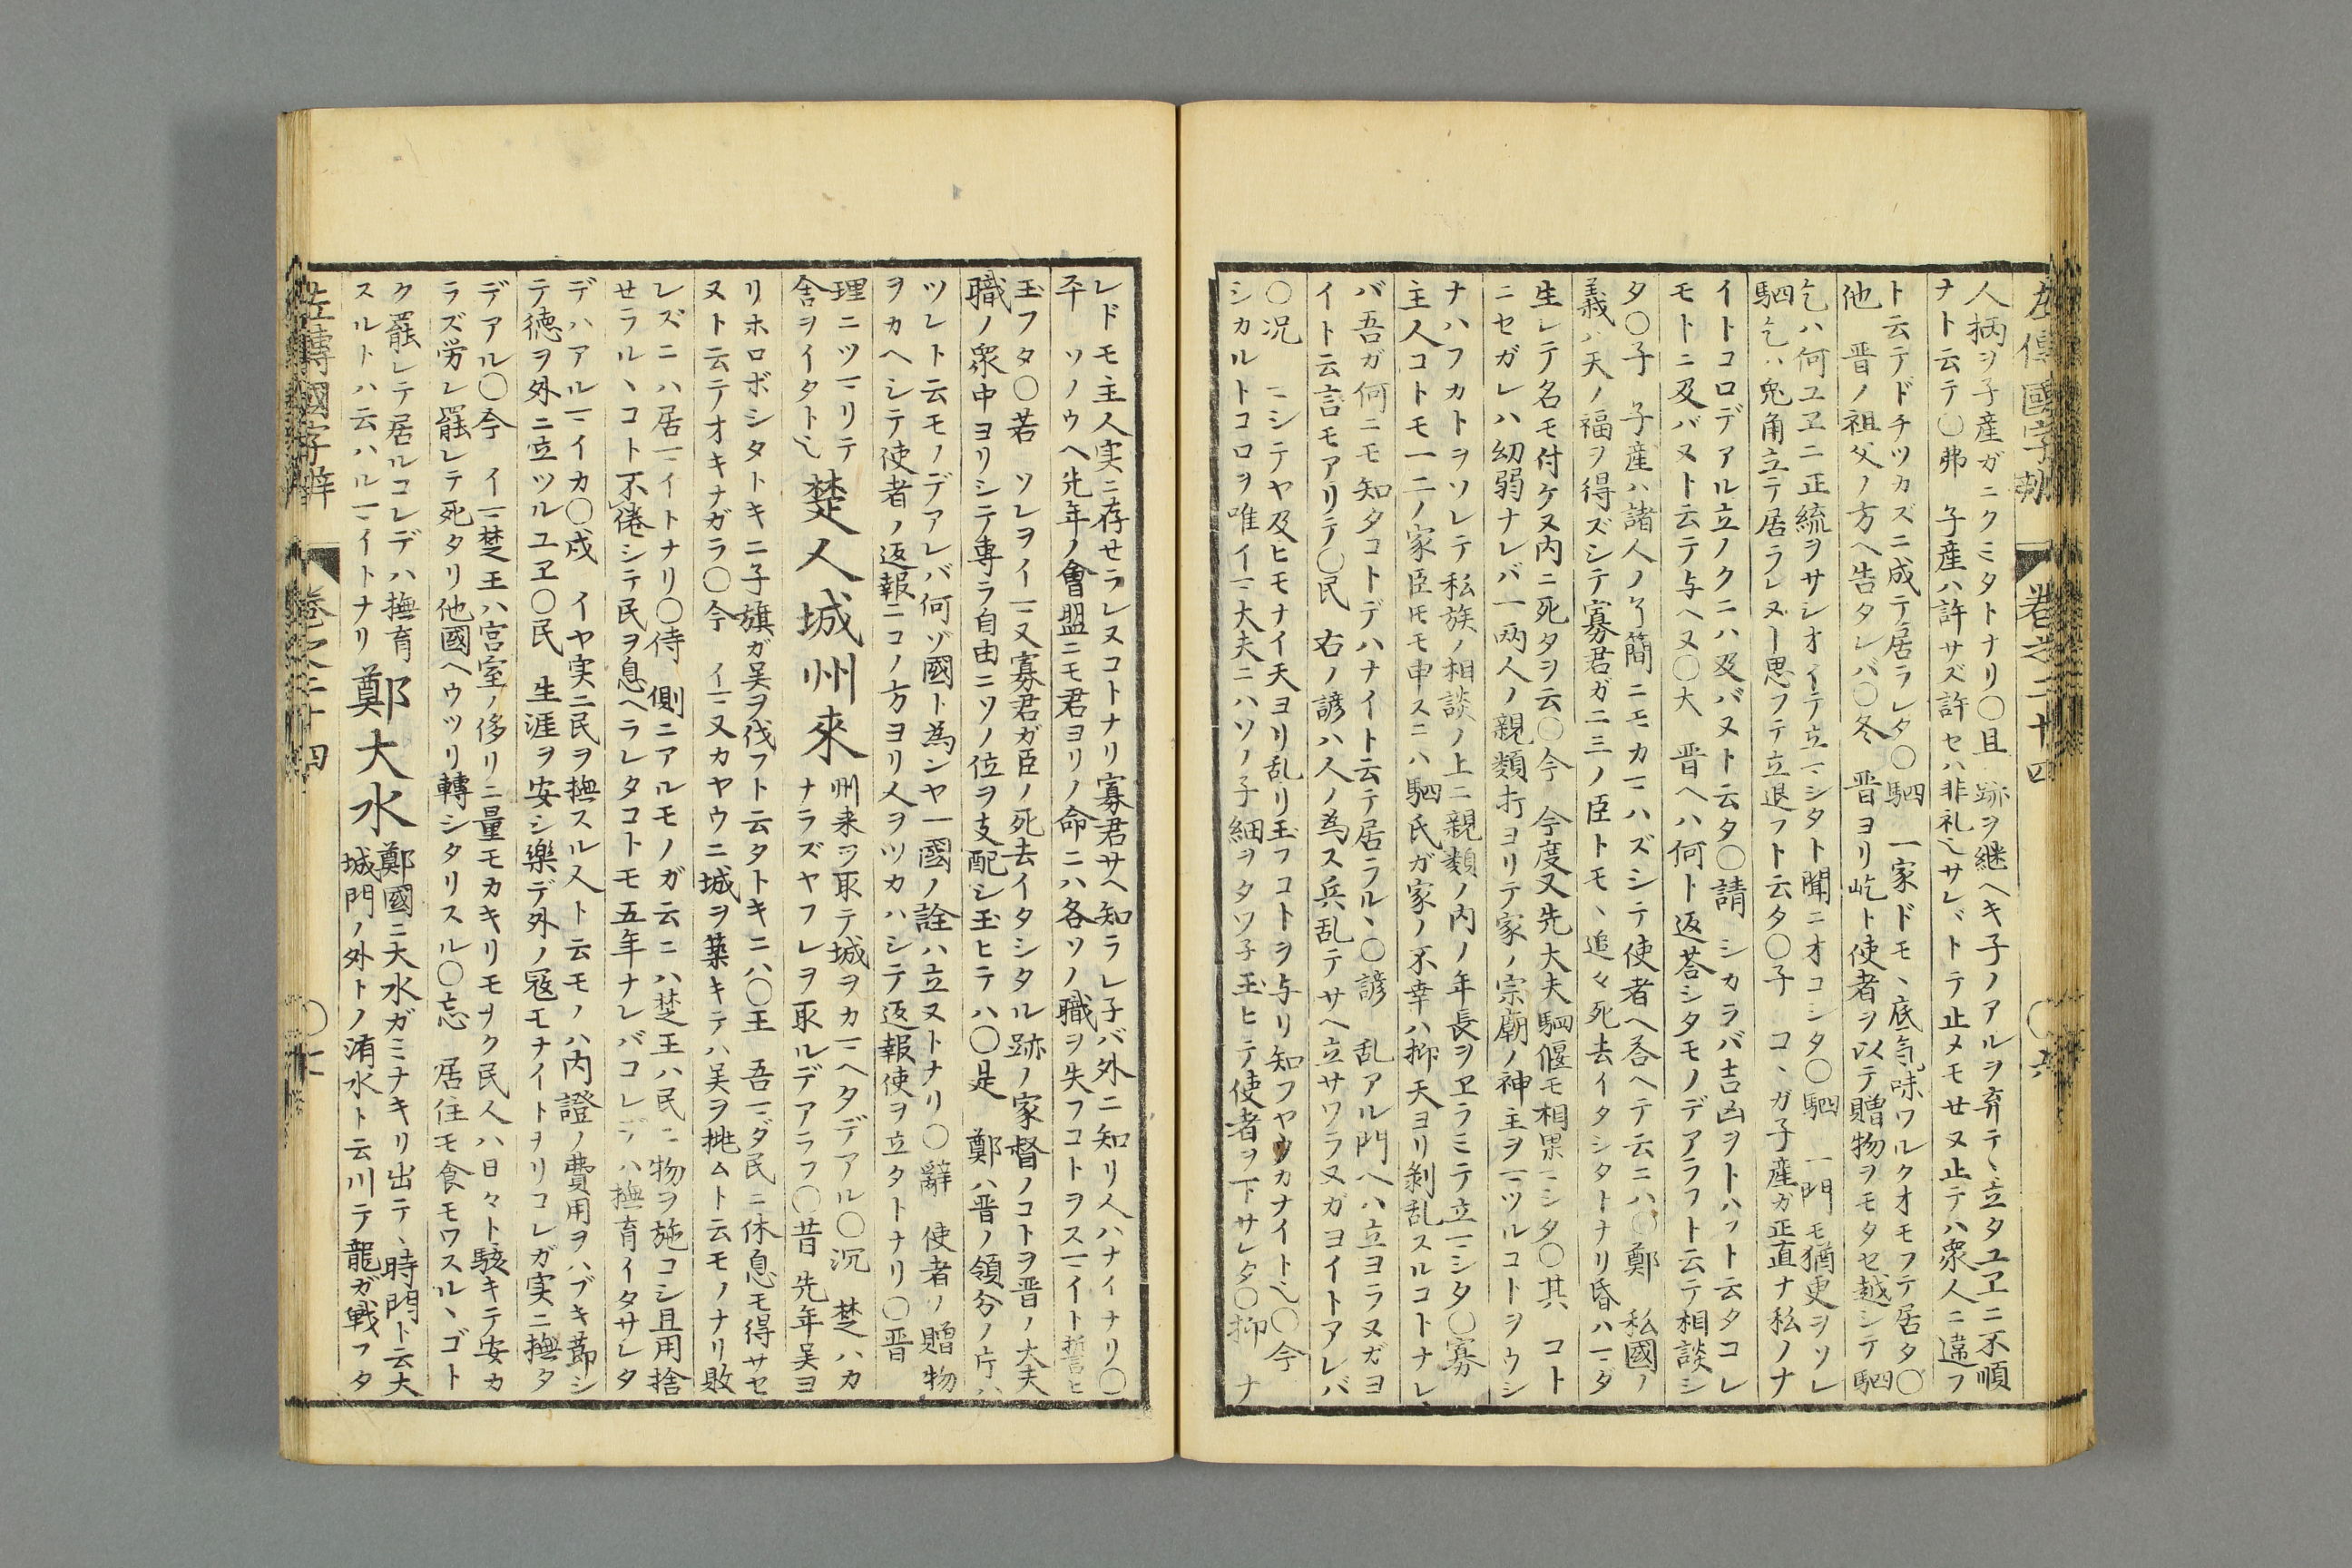 左傳國字辨 巻之二十四 〇六
人柄ヲ子産ガニクミタトナリ〇且 跡ヲ継ヘキ子ノアルヲ弃テヽ立タユヱニ不順
ナト云テ〇弗 子産ハ許サズ許セハ非礼也サレバトテ止メモセヌ止テハ衆人ニ違フ
ト云テドチツカズニ成テ居ラレタ〇駟 一家ドモヽ底気味ワルクオモフテ居タ〇
他 晋ノ祖父ノ方ヘ告タレバ〇冬 晋ヨリ屹ト使者ヲ以テ贈物ヲモタセ越シテ駟
乞ハ何ユヱニ正統ヲサシオイテ立マシタト聞ニオコシタ〇駟 一門モ猶更ヲソレ
駟乞ハ兎角立テ居ラレヌト思フテ立退フト云タ〇子 コヽガ子産ガ正直ナ私ノナ
イトコロデアル立ノクニハ及バヌト云タ〇請 シカラバ吉凶ヲトハフト云タコレ
モトニ及バヌト云テ与ヘヌ〇大 晋ヘハ何ト返荅シタモノデアラフト云テ相談シ
タ〇子 子産ハ諸人ノ了簡ニモカマハズシテ使者ヘ荅ヘテ云ニハ〇鄭 私國ノ
義ハ天ノ福ヲ得ズシテ寡君ガ二三ノ臣トモヽ追々死去イタシタトナリ昏ハマダ
生レテ名モ付ケヌ内ニ死タヲ云〇今 今度又先大夫駟偃モ相果マシタ〇其 コト
ニセガレハ幼弱ナレバ一両人ノ親類打ヨリテ家ノ宗廟ノ神主ヲマツルコトヲウシ
ナハフカトヲソレテ私族ノ相談ノ上ニ親類ノ内ノ年長ヲヱラミテ立マシタ〇寡
主人コトモ一二ノ家臣ドモモ申スニハ駟氏ガ家ノ不幸ハ抑天ヨリ剥乱スルコトナレ
バ吾ガ何ニモ知タコトデハナイト云テ居ラルヽ〇諺 乱アル門ヘハ立ヨラヌガヨ
イト云言モアリテ〇民 右ノ諺ハ人ノ為ス兵乱テサヘ立サワラヌガヨイトアレバ
〇况 マシテヤ及ヒモナイ天ヨリ乱リ玉フコトヲ与リ知フヤウカナイト也〇今
シカルトコロヲ唯イマ大夫ニハソノ子細ヲタツ子玉ヒテ使者ヲ下サレタ〇抑 ナ
レドモ主人実ニ存セラレヌコトナリ寡君サヘ知ラレ子バ外ニ知リ人ハナイナリ〇
平 ソノウヘ先年ノ會盟ニモ君ヨリノ命ニハ各ソノ職ヲ失フコトヲスマイト誓ヒ
玉フタ〇若 ソレヲイマ又寡君ガ臣ノ死去イタシタル跡ノ家督ノコトヲ晋ノ大夫
職ノ衆中ヨリシテ専ラ自由ニソノ位ヲ支配シ玉ヒテハ〇是 鄭ハ晋ノ領分ノ片ハ
ツレト云モノデアレバ何ゾ國ト為ンヤ一國ノ詮ハ立ヌトナリ〇辭 使者ノ贈物
ヲカヘシテ使者ノ返報ニコノ方ヨリ人ヲツカハシテ返報使ヲ立タトナリ〇晋
理ニツマリテ
舎ヲイタト也
楚人城州來
州来ヲ取テ城ヲカマヘタデアル〇沉 楚ハカ
ナラズヤフレヲ取ルデアラフ〇昔 先年吴ヨ
リホロボシタトキニ子旗ガ吴ヲ伐フト云タトキニハ〇王 吾マダ民ニ休息モ得サセ
ヌト云テオキナガラ〇今 イマ又カヤウニ城ヲ築キテハ吴ヲ挑ムト云モノナリ敗
レズニハ居マイトナリ〇侍 側ニアルモノガ云ニハ楚王ハ民ニ物ヲ施コシ且用捨
セラルヽコト不倦シテ民ヲ息ヘラレタコトモ五年ナレバコレデハ撫育イタサレタ
デハアルマイカ〇戍 イヤ実ニ民ヲ撫スル人ト云モノハ内證ノ費用ヲハブキ節シ
テ徳ヲ外ニ立ツルユヱ〇民 生涯ヲ安シ樂デ外ノ冦モナイトヲリコレガ実ニ撫タ
デアル〇今 イマ楚王ハ宮室ノ侈リニ量モカキリモヲク民人ハ日々ト駭キテ安カ
ラズ労レ罷レテ死タリ他國ヘウツリ轉シタリスル〇忘 居住モ食モワスルヽゴト
ク罷レテ居ルコレデハ撫育
スルトハ云ハルマイトナリ
鄭大水
鄭國ニ大水ガミナキリ出テヽ時門ト云大
城門ノ外トノ洧水ト云川テ龍ガ戦フタ
左傳國字辨 巻之二十四 〇七